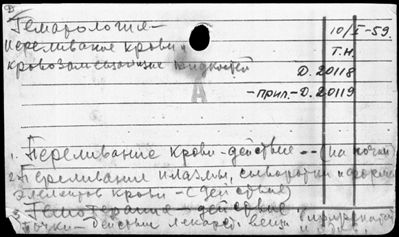 Гематология –
переливание крови и
кровозамещающие жидкостей
10/I-59.
Т.Н.
Д. 20118
– прил. – Д. 20119
А
1. Переливание крови – действие – – (на почки)
2. Переливания плазмы, сыворотки и форм
элементов крови – (действие)
3. Гемотерапия – действие
почки – действие лекарств. вещ